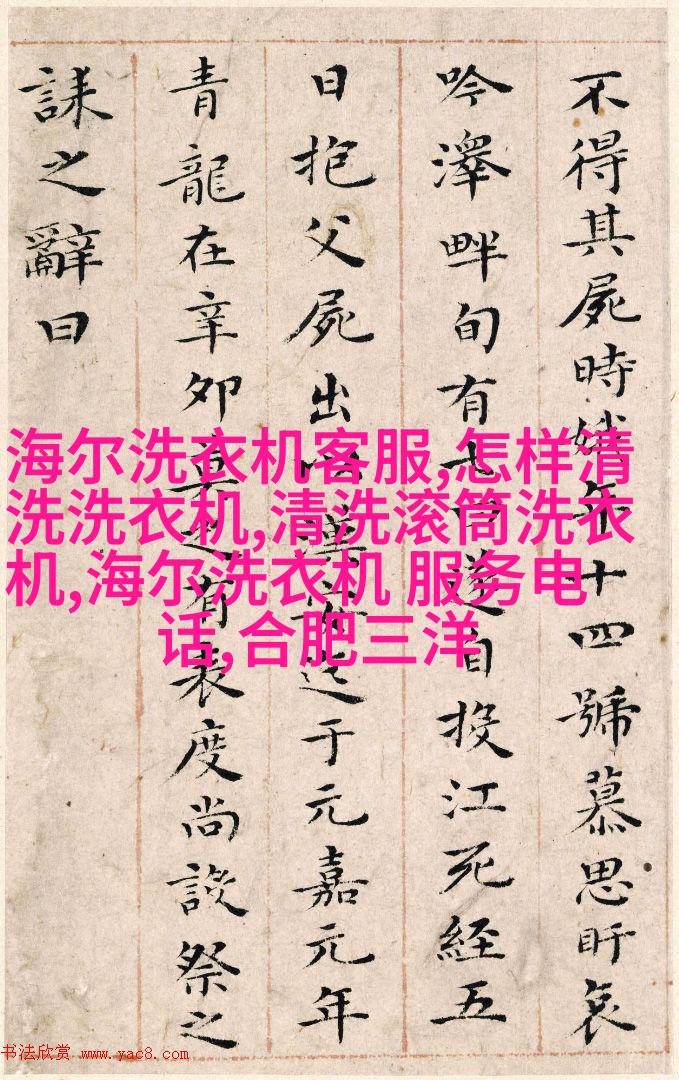 不得其屍時娥年十四號慕思盱哀
吟澤畔旬有七日遂自投江死經五
日抱父屍出以漢安迄于元嘉元年
青龍在辛卯莫之有表度尚設祭之
誄之辭曰
海尔洗衣机客服,怎样清
洗洗衣机,清洗滚筒洗衣
机,海尔洗衣机 服务电
话,合肥三洋
书法欣赏 www.yac8.com